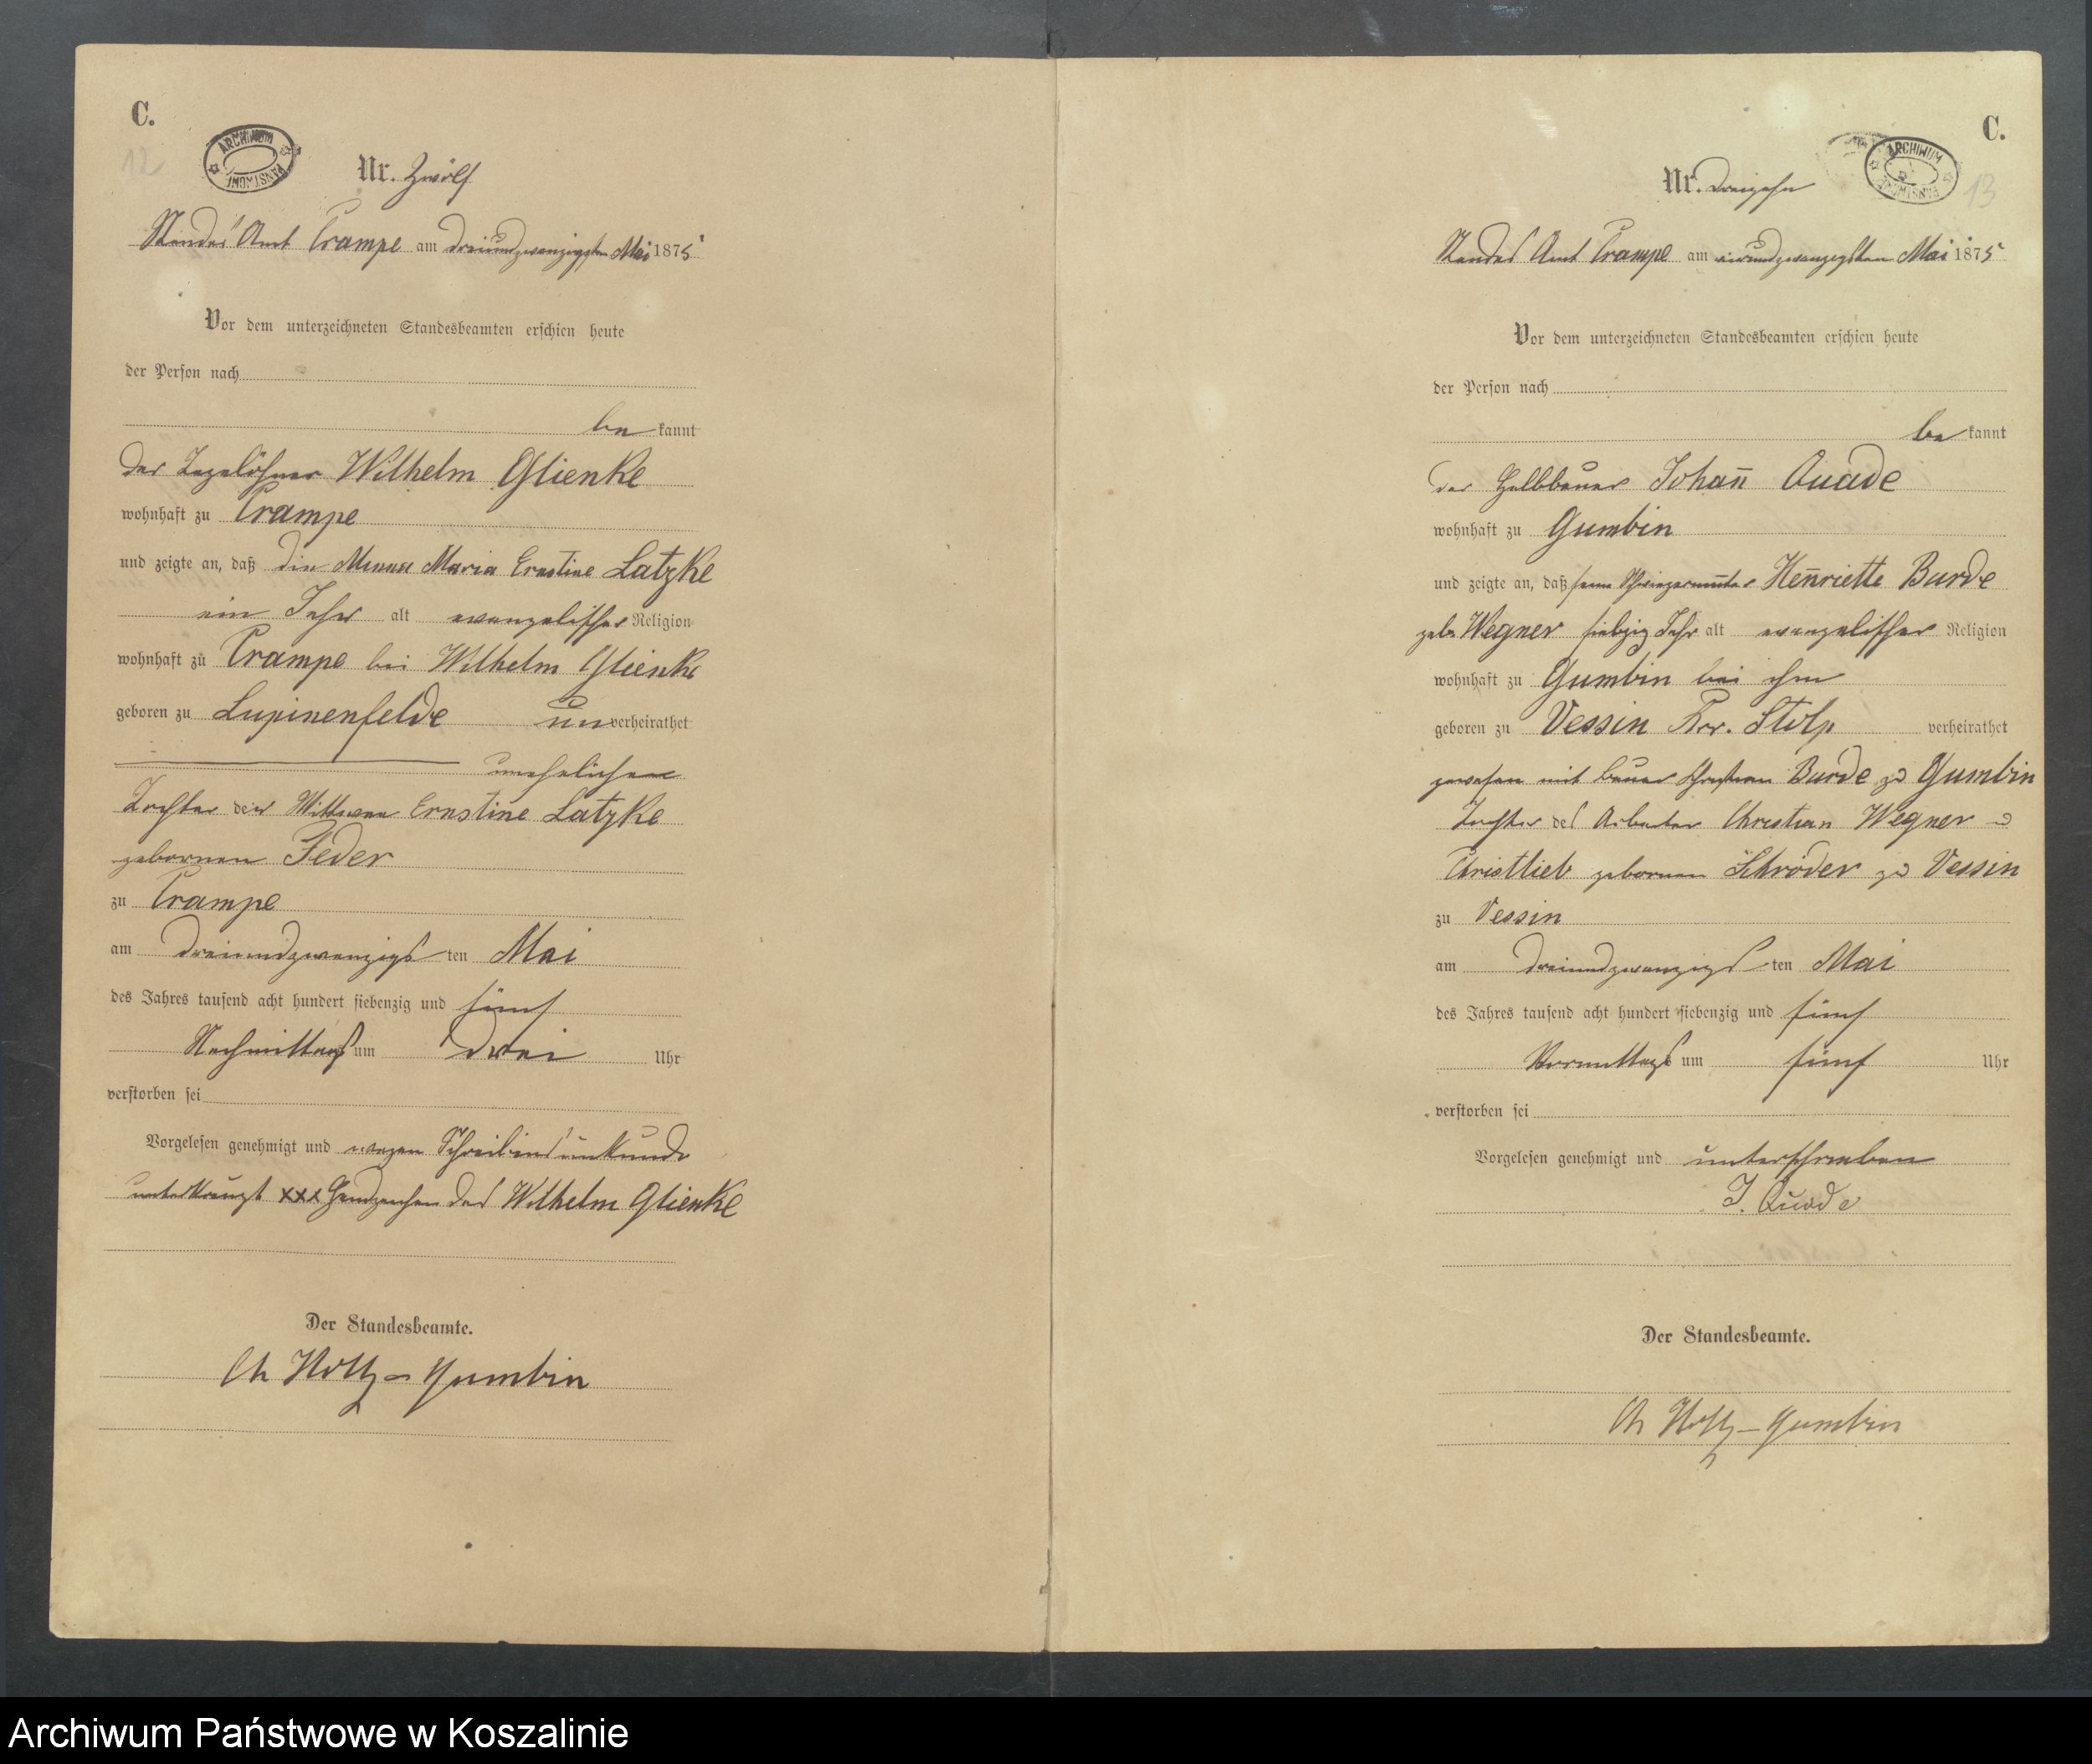 C.
12
ARCHIWUM PAŃSTWOWE
Nr. Zwölf
Standes Amt Crampe am dreiundzwanzigsten Mai 1875
Vor dem unterzeichneten Standesbeamten erschien heute
der Person nach
be kannt
der Tagelöhner Wilhelm Glienke
wohnhaft zu Crampe
und zeigte an, daß die Minna Maria Ernstine Latzke
ein Jahr alt evangelischer Religion
wohnhaft zu Crampe bei Wilhelm Glienke
geboren zu Lupinenfelde un verheirathet
unehelichen
Tochter der Wittwee Ernstine Latzke
gebornen Feder
zu Crampe
am dreiundzwanzigs ten Mai
des Jahres tausend acht hundert siebenzig und fünf
Nachmittags um drei Uhr
verstorben sei
Vorgelesen genehmigt und wegen Schreibensunkunde
unterkreuzt xxx Handzeichen des Wilhelm Glienke
Der Standesbeamte.
Ch Holtz - Gumbin
C.
13
ARCHIWUM PAŃSTWOWE
Nr. dreizehn
Standes Amt Crampe am vierundzwanzigsten Mai 1875
Vor dem unterzeichneten Standesbeamten erschien heute
der Person nach
be kannt
der Halbbauer Johañ Quade
wohnhaft zu Gumbin
und zeigte an, daß seine Schwiegermutter Heñriette Burde
geb. Wegner siebzig Jahr alt evangelischer Religion
wohnhaft zu Gumbin bei ihm
geboren zu Vessin Krr. Stolp verheirathet
gewesen mit Bauer Christian Burde zu Gumbin
Tochter des Arbeiter Christian Wegner u
Christlieb gebornen Schröder zu Vessin
zu Vessin
am dreiundzwanzigs ten Mai
des Jahres tausend acht hundert siebenzig und fünf
Vormittags um fünf Uhr
verstorben sei
Vorgelesen genehmigt und unterschrieben
J. Quade
Der Standesbeamte.
Ch Holtz - Gumbin
Archiwum Państwowe w Koszalinie